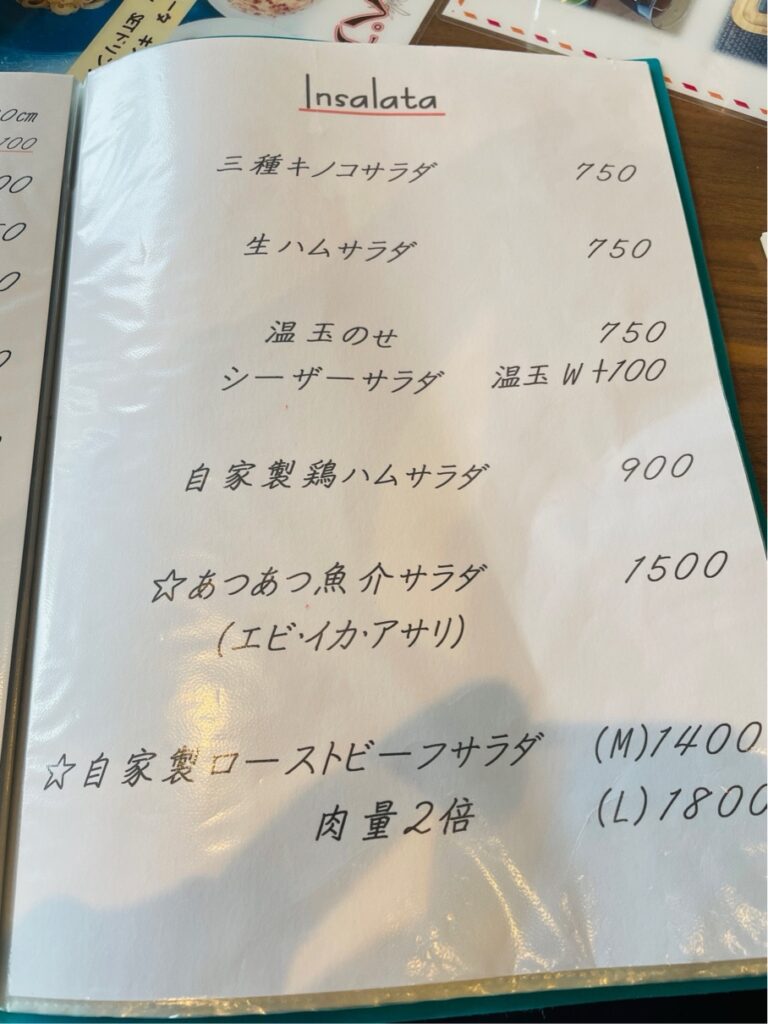 Insalata
三種キノコサラダ 750
生ハムサラダ 750
温玉のせ 750
シーザーサラダ 温玉W+100
自家製鶏ハムサラダ 900
☆あつあつ魚介サラダ 1500
(エビ・イカ・アサリ)
☆自家製ローストビーフサラダ (M)1400
肉量2倍 (L)1800